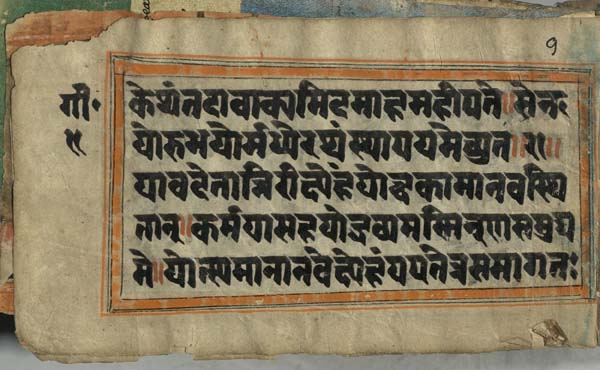 9
गी॰
केशंतदावाक्यमिदमाहमहीपते॥सेन
योरुभयोर्मध्येरथंस्थापयमेच्युत॥२१॥
यावदेतान्निरीक्षेहंयोद्धुकामानवस्थि
तान्॥कर्मयासहयोद्धव्यमस्मिन्रणसमुद्य
मे॥योत्स्यमानानवेक्षेहंयएतेत्रसमागतः